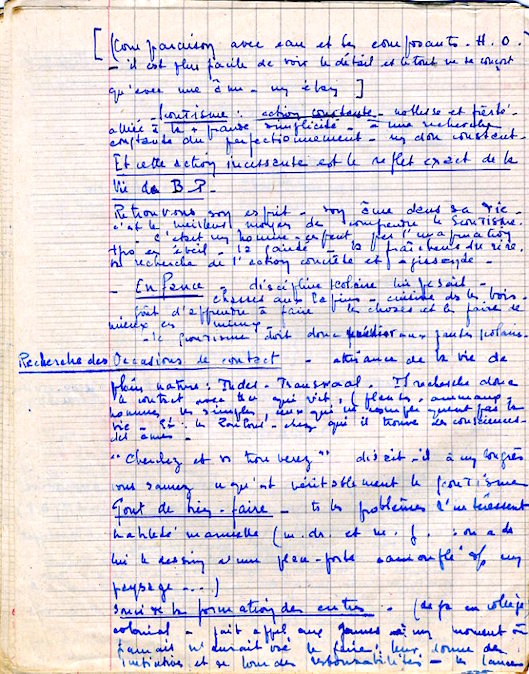 [ (Comparaison avec eau et les composants. H. O.
- il est plus facile de voir le détail et le tout ne se conçoit
qu'avec une âme - ]
- Scoutisme : action constante - noblesse et
alliée à la + grande simplicité - à une recherche
constante du perfectionnement - un don constant.
Et cette action incessante est le reflet exact de la
Vie de B. P. -
Retrouvons son esprit - son âme dans sa vie
c'est le meilleur moyen de comprendre le Scoutisme.
- c'était un homme-enfant par l'imagination
tjrs en éveil - la santé - la fraîcheur du rire.
sa recherche de l'action concrète et agissante.
- Enfance - discipline scolaire lui pesait -
chasses aux lapins - cuisine ds les bois.
goût d'apprendre à faire les choses et les faire le
mieux
- le scoutisme doit donc aux scolaires.
Recherche des Occasions de contact - attirance de la vie de
plein nature : Indes - Transvaal. Il recherche donc
le contact avec tt ce qui vit, (plantes, animaux,
hommes, les simples, ceux qui ne compliquent pas la
vie - Ex : les Zoulous - chez qui il trouve des consciences -
des âmes -
"Cherchez et vs trouverez" disait-il à un congrès
sur ce qu'est véritablement le scoutisme
Goût de bien-faire - ts les problèmes l'intéressent
habileté manuelle (m. dr. et m. g. : on a de
lui le dessin d'une place-forte camouflé un
paysage ...)
Souci de la formation des autres - (déjà en collège
colonial - fait appel aux jeunes à un moment où
jamais n'aurait osé le faire : leur donne des
initiatives et des responsabilités -